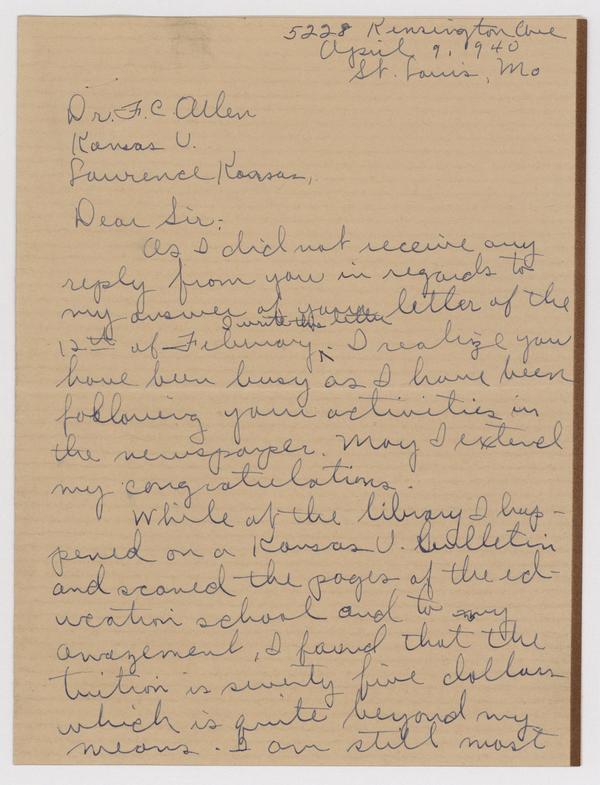 5228 Kensington Ave
April 9, 1940
St. Louis, Mo
Dr. F. C. Allen
Kansas U.
Lawrence Kansas,
Dear Sir:
As I did not receive any
reply from you in regards to
my answer of youre letter of the
I write this letter
12th of February. I realize you
have been busy as I have been
following your activities in
the newspaper. May I extend
my congratulations.
While at the library I hap-
pened on a Kansas U. bulletin
and scaned the pages of the ed-
ucation school and to my
amazement, I found that the
tuition is seventy five dollars
which is quite beyond my
means. I am still most